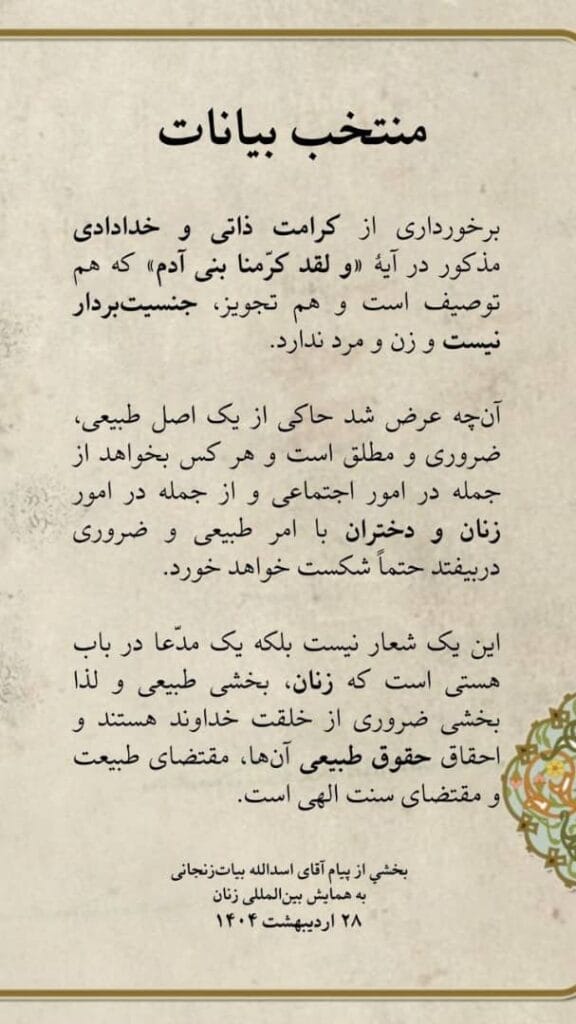 منتخب بیانات
برخورداری از کرامت ذاتی و خدادادی
مذکور در آیهٔ «و لقد کرّمنا بنی آدم» که هم
توصیف است و هم تجویز، جنسیت‌بردار
نیست و زن و مرد ندارد.
آن‌چه عرض شد حاکی از یک اصل طبیعی،
ضروری و مطلق است و هر کس بخواهد از
جمله در امور اجتماعی و از جمله در امور
زنان و دختران با امر طبیعی و ضروری
دربیفتد حتماً شکست خواهد خورد.
این یک شعار نیست بلکه یک مدّعا در باب
هستی است که زنان، بخشی طبیعی و لذا
بخشی ضروری از خلقت خداوند هستند و
احقاق حقوق طبیعی آن‌ها، مقتضای طبیعت
و مقتضای سنت الهی است.
بخشي از پیام آقای اسدالله بیات‌زنجانی
به همایش بین‌المللی زنان
۲۸ اردیبهشت ۱۴۰۴